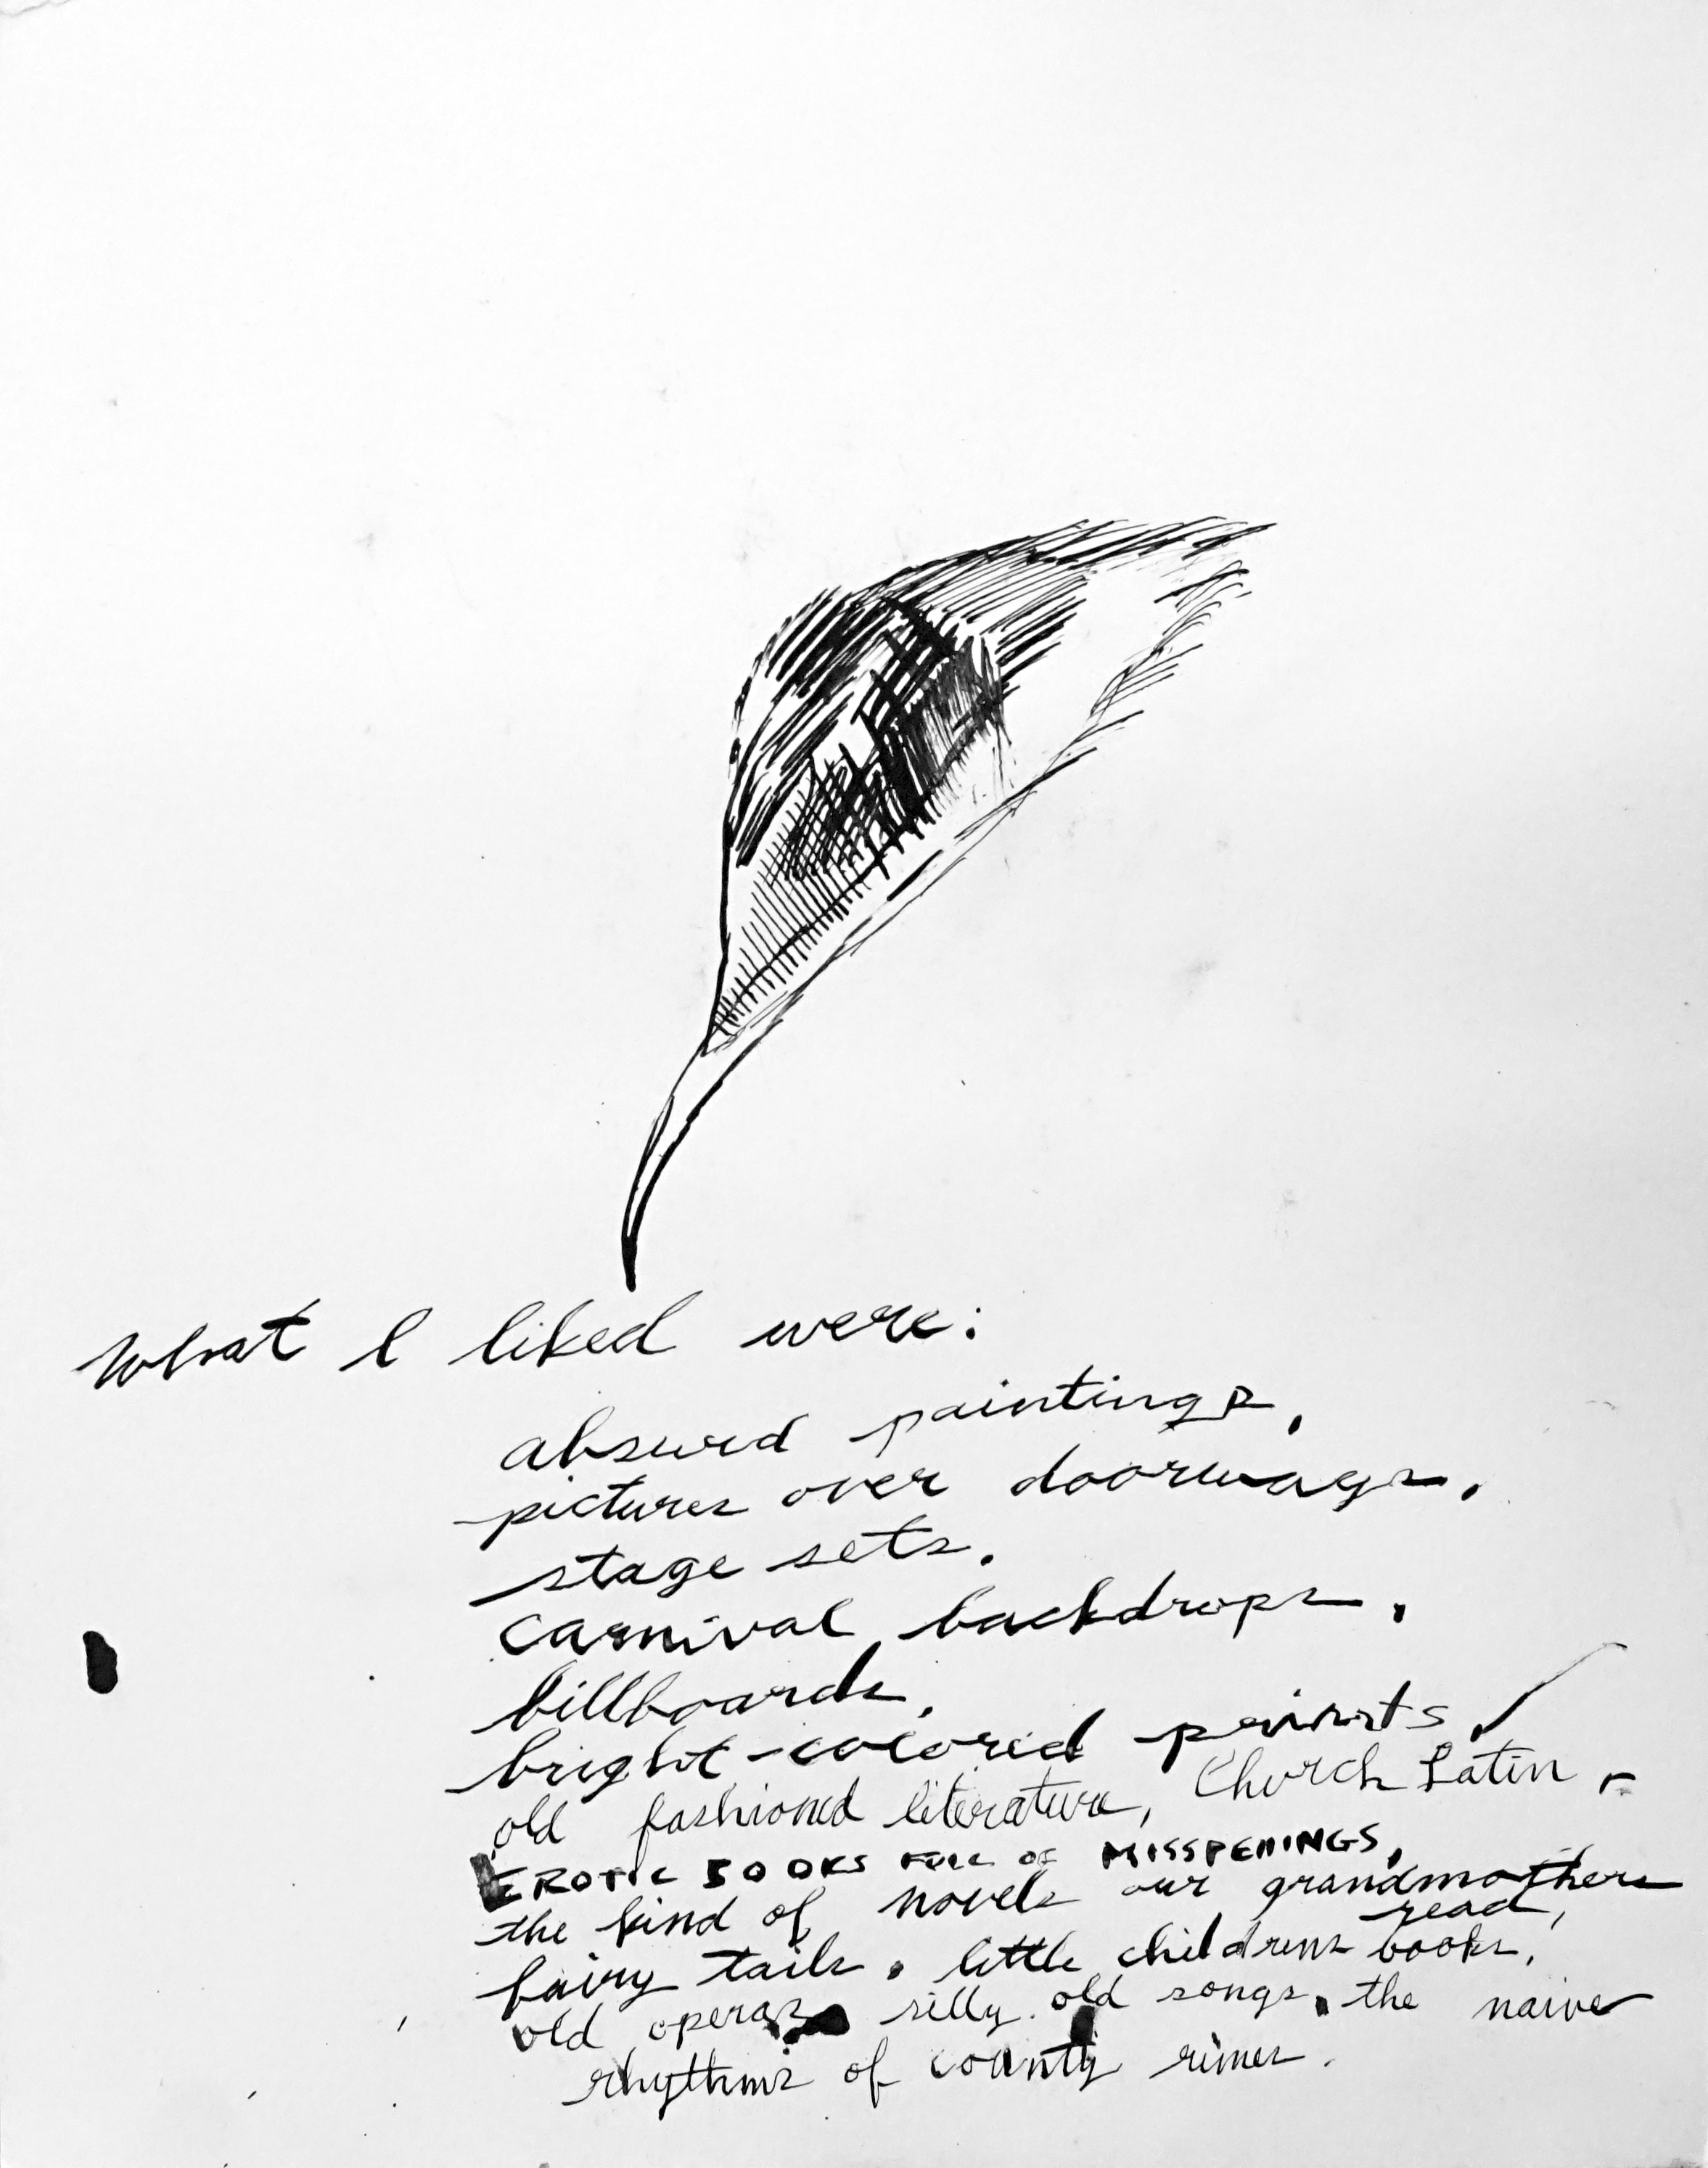 What I liked were:
absurd paintings,
pictures over doorways,
stage sets,
carnival backdrops,
billboards,
bright-colored prints,
old fashioned literature, Church Latin,
EROTIC BOOKS FULL OF MISSPELLINGS,
the kind of novels our grandmothers
read,
fairy tails, little childrens books,
old operas, silly old songs, the naive
rhythms of county rimes.